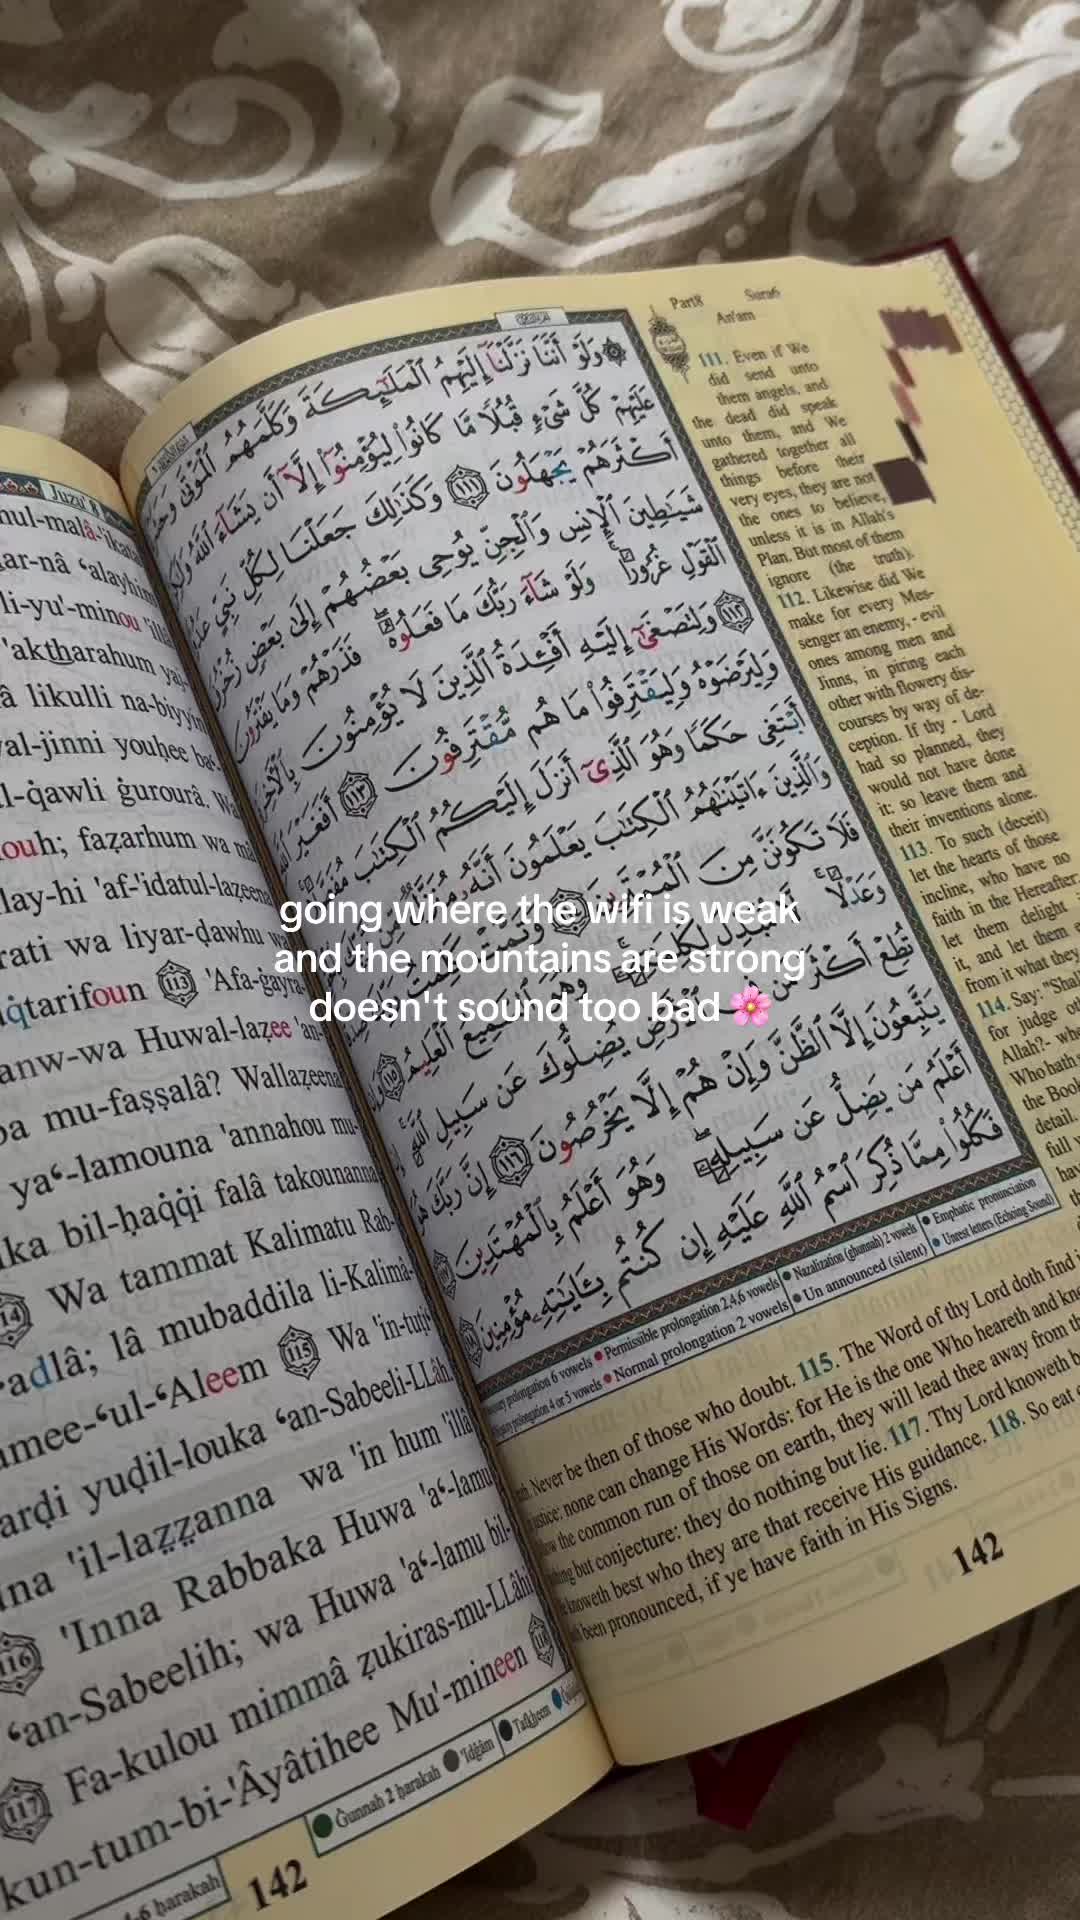 Juzu' 8
hul-malâ-'ikata
ar-nâ ʻalayhim
li-yu'-minou 'illâ
'aktharahum yaj-
â likulli na-biyyin
al-jinni youḥee ba‘-
l-q̇awli ġurourâ. Wa
ouh; faẓarhum wa mâ
lay-hi 'af-'idatul-laẓeena
rati wa liyar-ḍawhu wa
q̇tarifoun 113 'Afa-ġayra-
anw-wa Huwal-laẓee 'an-
ba mu-faṣṣalâ? Wallaẓeena
yaʻ-lamouna 'annahou mu-
ika bil-ḥaq̇q̇i falâ takounanna
14 Wa tammat Kalimatu Rab-
ʻadlâ; lâ mubaddila li-Kalimâ-
amee-ʻul-ʻAleem 115 Wa 'in-tuṭi‘
arḍi yuḍil-louka ʻan-Sabeeli-LLâh.
una 'il-laẓẓanna wa 'in hum 'illâ
116 'Inna Rabbaka Huwa 'aʻ-lamu
ʻan-Sabeelih; wa Huwa 'aʻ-lamu bil-
117 Fa-kulou mimmâ ẓukiras-mu-LLâhi
kun-tum-bi-'Âyâtihee Mu'-mineen 118
4-6 ḥarakah Ġunnah 2 ḥarakah 'Idġâm Tafkheem
142
Part8 Sura6
An'am
وَلَوْ أَنَّنَا نَزَّلْنَآ إِلَيْهِمُ ٱلْمَلَٰٓئِكَةَ وَكَلَّمَهُمُ ٱلْمَوْتَىٰ وَحَشَرْنَا
عَلَيْهِمْ كُلَّ شَىْءٍ قُبُلًا مَّا كَانُوا۟ لِيُؤْمِنُوٓا۟ إِلَّآ أَن يَشَآءَ ٱللَّهُ وَلَٰكِنَّ
أَكْثَرَهُمْ يَجْهَلُونَ ١١١ وَكَذَٰلِكَ جَعَلْنَا لِكُلِّ نَبِىٍّ عَدُوًّا
شَيَٰطِينَ ٱلْإِنسِ وَٱلْجِنِّ يُوحِى بَعْضُهُمْ إِلَىٰ بَعْضٍ زُخْرُفَ
ٱلْقَوْلِ غُرُورًا وَلَوْ شَآءَ رَبُّكَ مَا فَعَلُوهُ فَذَرْهُمْ وَمَا يَفْتَرُونَ
١١٢ وَلِتَصْغَىٰٓ إِلَيْهِ أَفْـِٔدَةُ ٱلَّذِينَ لَا يُؤْمِنُونَ بِٱلْـَٔاخِرَةِ
وَلِيَرْضَوْهُ وَلِيَقْتَرِفُوا۟ مَا هُم مُّقْتَرِفُونَ ١١٣ أَفَغَيْرَ ٱللَّهِ
أَبْتَغِى حَكَمًا وَهُوَ ٱلَّذِىٓ أَنزَلَ إِلَيْكُمُ ٱلْكِتَٰبَ مُفَصَّلًا
وَٱلَّذِينَ ءَاتَيْنَٰهُمُ ٱلْكِتَٰبَ يَعْلَمُونَ أَنَّهُۥ مُنَزَّلٌ مِّن
فَلَا تَكُونَنَّ مِنَ ٱلْمُمْتَرِينَ وَتَمَّتْ كَلِمَتُ
وَعَدْلًا لَّا مُبَدِّلَ لِكَلِمَٰتِهِۦ وَهُوَ ٱلسَّمِيعُ ٱلْعَلِيمُ ١١٥ وَإِن
تُطِعْ أَكْثَرَ مَن فِى ٱلْأَرْضِ يُضِلُّوكَ عَن سَبِيلِ ٱللَّهِ
يَتَّبِعُونَ إِلَّا ٱلظَّنَّ وَإِنْ هُمْ إِلَّا يَخْرُصُونَ ١١٦ إِنَّ رَبَّكَ هُوَ
أَعْلَمُ مَن يَضِلُّ عَن سَبِيلِهِۦ وَهُوَ أَعْلَمُ بِٱلْمُهْتَدِينَ
فَكُلُوا۟ مِمَّا ذُكِرَ ٱسْمُ ٱللَّهِ عَلَيْهِ إِن كُنتُم بِـَٔايَٰتِهِۦ مُؤْمِنِينَ
prolongation 6 vowels Permissible prolongation 2,4,6 vowels Nazalization (ghunnah) 2 vowels Emphatic pronunciation
prolongation 4 or 5 vowels Normal prolongation 2 vowels Un announced (silent) Unrest letters (Echoing Sound)
111. Even if We
did send unto
them angels, and
the dead did speak
unto them, and We
gathered together all
things before their
very eyes, they are not
the ones to believe,
unless it is in Allah's
Plan. But most of them
ignore (the truth).
112. Likewise did We
make for every Mes-
senger an enemy, - evil
ones among men and
Jinns, in piring each
other with flowery dis-
courses by way of de-
ception. If thy - Lord
had so planned, they
would not have done
it: so leave them and
their inventions alone.
113. To such (deceit)
let the hearts of those
incline, who have no
faith in the Hereafter:
let them delight i
it, and let them e
from it what they
114. Say: "Shal
for judge oth
Allah?- whe
Who hath s
the Book
detail.
full w
hav
th
Never be then of those who doubt. 115. The Word of thy Lord doth find i
justice: none can change His Words: for He is the one Who heareth and kno
low the common run of those on earth, they will lead thee away from th
thing but conjecture: they do nothing but lie. 117. Thy Lord knoweth b
knoweth best who they are that receive His guidance. 118. So eat o
been pronounced, if ye have faith in His Signs.
142
going where the wifi is weak
and the mountains are strong
doesn't sound too bad 🌸